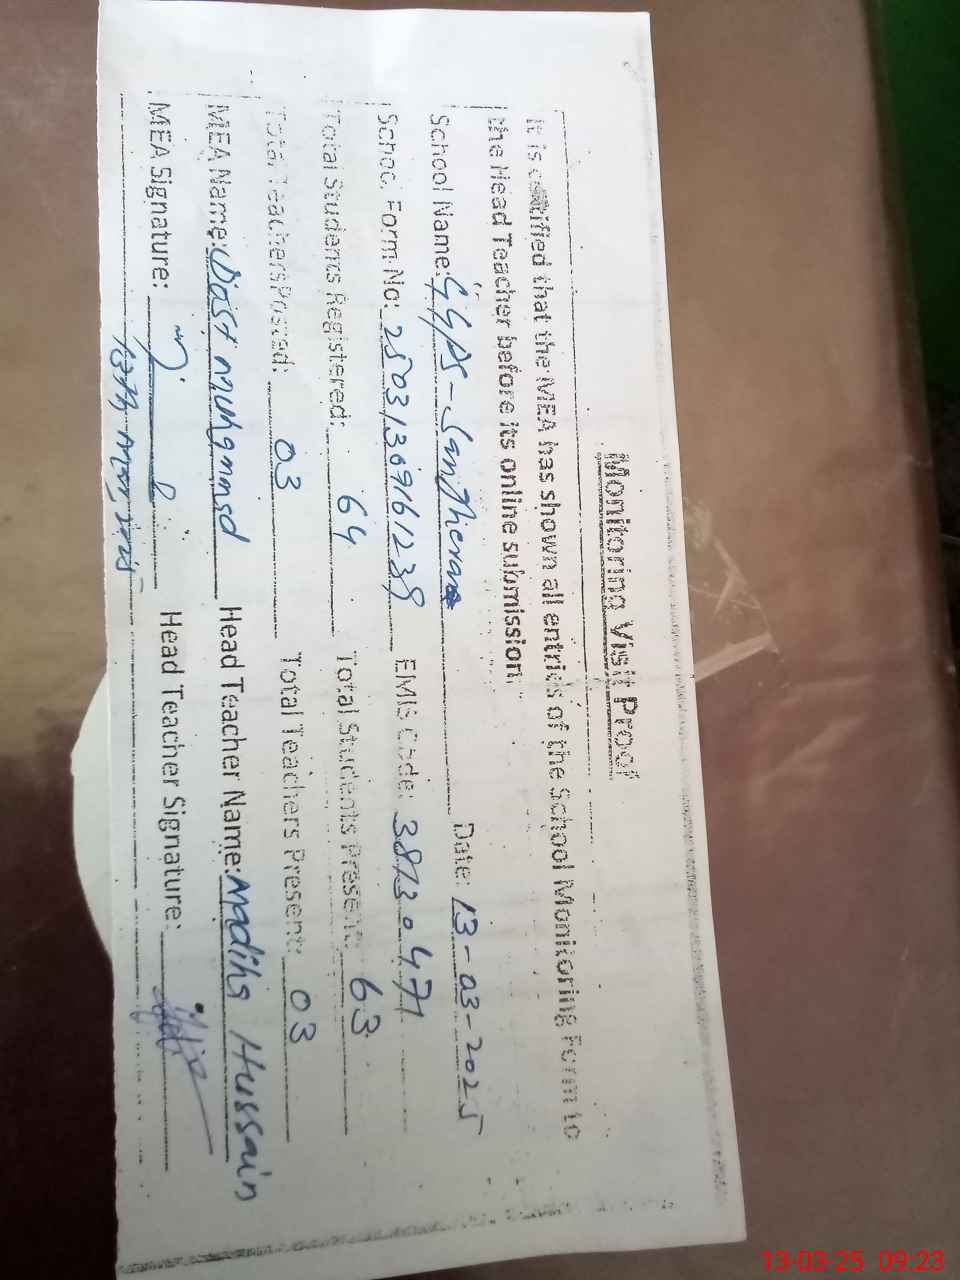 Monitoring Visit Proof
It is certified that the MEA has shown all entries of the School Monitoring Form to
the Head Teacher before its online submission."
School Name: GGPS-Santhera Date: 13-03-2025
School Form No: 25031309161239 EMIS Code: 38130471
Total Students Registered: 64 Total Students Present: 63
Total Teachers Posted: 03 Total Teachers Present: 03
MEA Name: Dost Muhammad Head Teacher Name: Madiha Hussain
MEA Signature: Head Teacher Signature:
13th Mar 2025
13-03-25 09:23